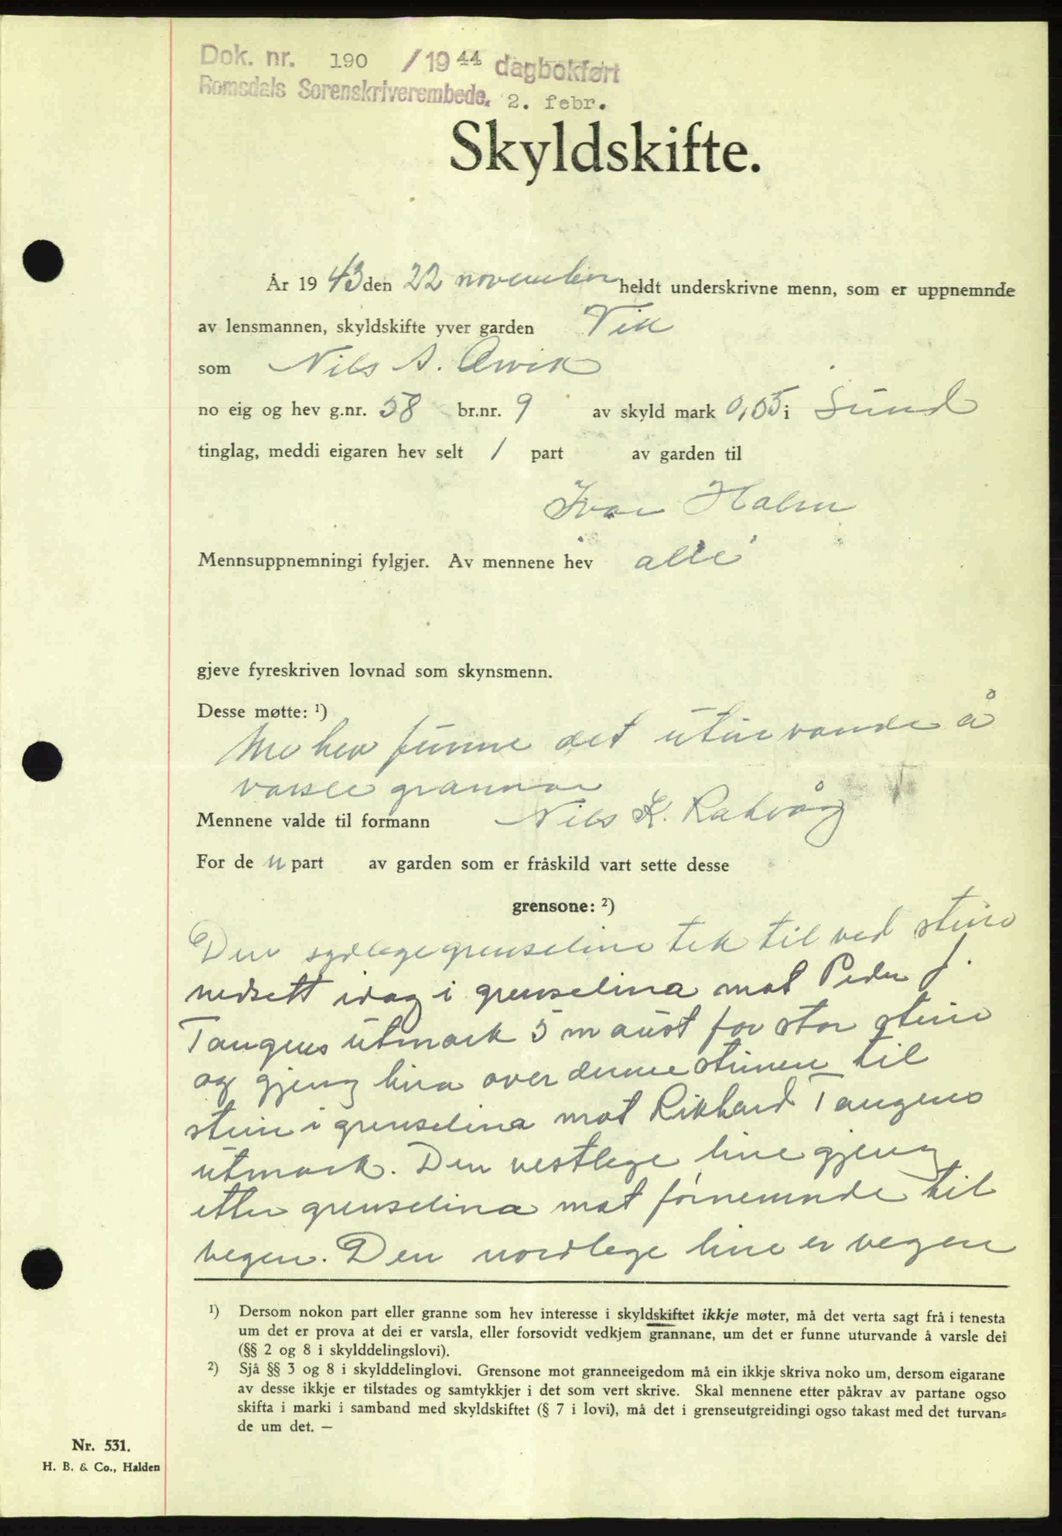 Dok. nr. 190 /1944 dagbokført
Romsdals Sorenskriverembede. 2. febr.
Skyldskifte.
År 1943 den 22 november heldt underskrivne menn, som er uppnemnde
av lensmannen, skyldskifte yver garden Vik
som Nils A. Qwik
no eig og hev g.nr. 58 br.nr. 9 av skyld mark 0,05 i Sund
tinglag, meddi eigaren hev selt 1 part av garden til
Ivar Halsen
Mennsuppnemningi fylgjer. Av mennene hev alle
gjeve fyreskriven lovnad som skynsmenn.
Desse møtte: ¹)
Me hev funne det uturvande å
varsle grannar
Mennene valde til formann Nils K. Rakvåg
For de n part av garden som er fråskild vart sette desse
grensone: ²)
Den sydlege grenselina tek til ved stein
nedsett idag i grenselina mot Peder J.
Tangens utmark 5 m aust for stor stein
og gjeng lina over denne steinen til
stein i grenselina mot Rikhard Tangens
utmark. Den vestlege line gjeng
etter grenselina mot fornemnde til
vegen. Den nordlege line er vegen
¹) Dersom nokon part eller granne som hev interesse i skyldskiftet ikkje møter, må det verta sagt frå i tenesta
um det er prova at dei er varsla, eller forsovidt vedkjem grannane, um det er funne uturvande å varsle dei
(§§ 2 og 8 i skylddelingslovi).
²) Sjå §§ 3 og 8 i skylddelinglovi. Grensone mot granneeigedom må ein ikkje skriva noko um, dersom eigarane
av desse ikkje er tilstades og samtykkjer i det som vert skrive. Skal mennene etter påkrav av partane ogso
skifta i marki i samband med skyldskiftet (§ 7 i lovi), må det i grenseutgreidingi ogso takast med det turvan=
de um det. —
Nr. 531.
H. B. & Co., Halden